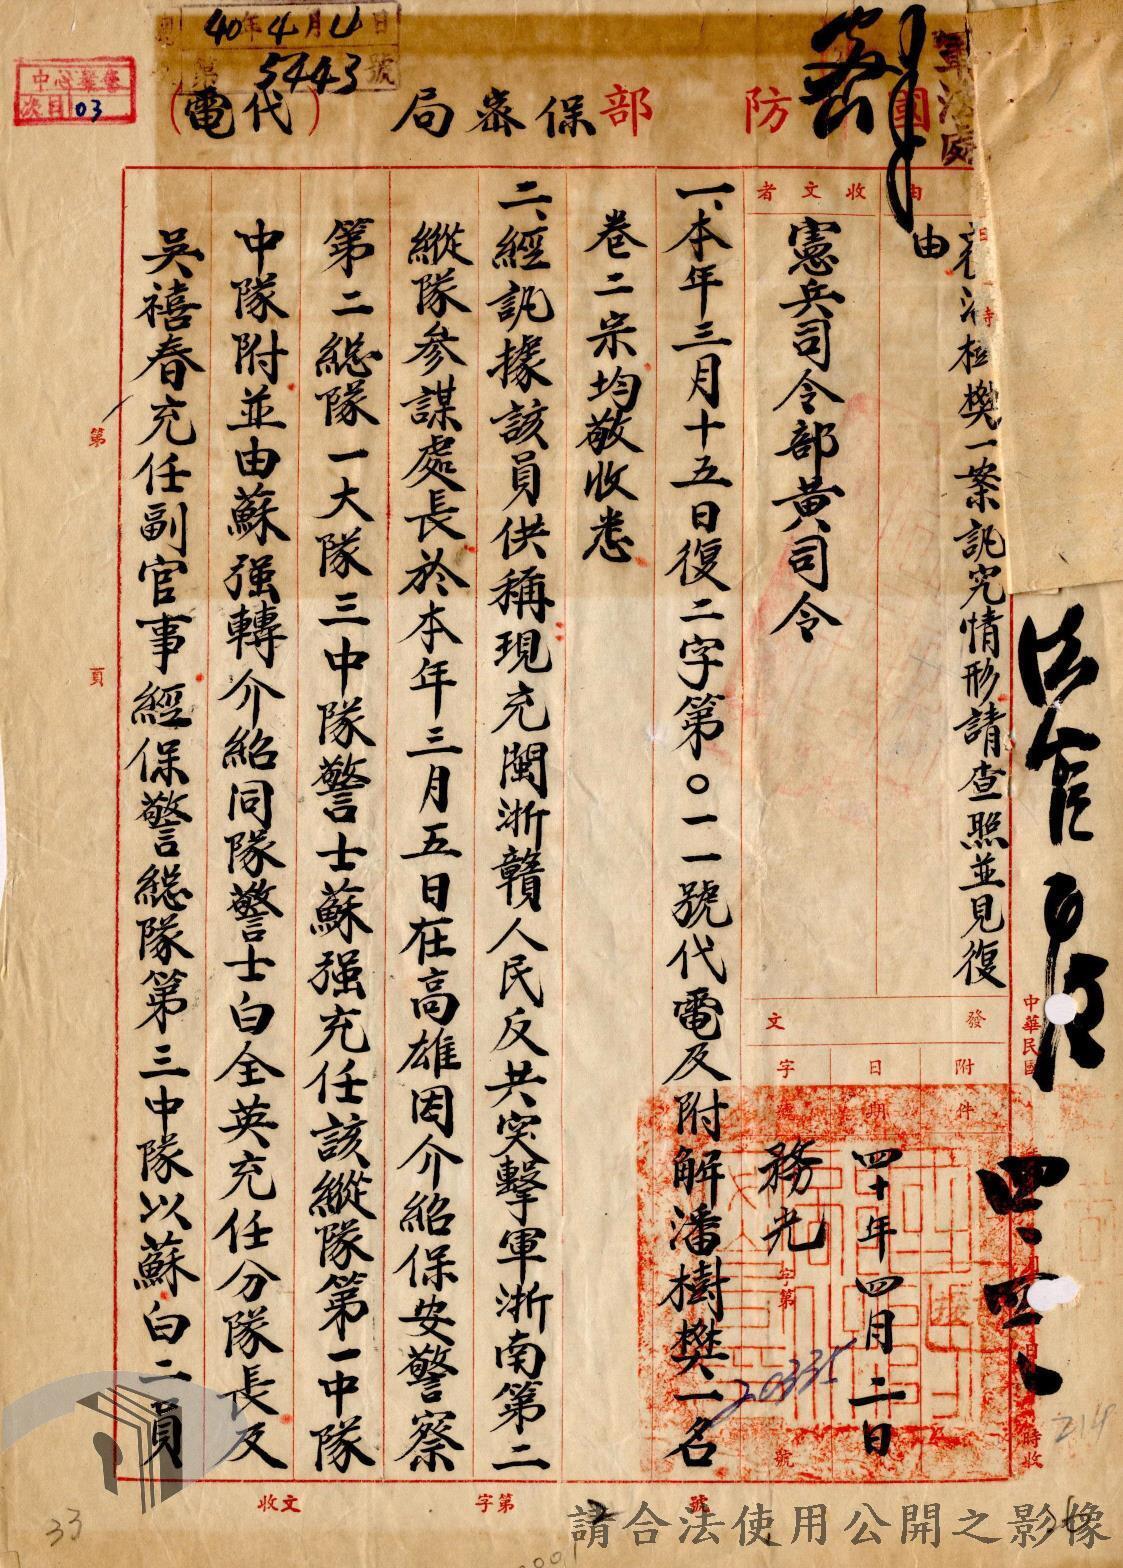 40年4月4日
5443號
中心業華
次目 03
國防部保密局(代電)
軍法處
由
收文者
樹樊一案訊究情形請查照並見復
由
憲兵司令部黃司令
發文
附件
日期
字第
號
四十年四月二日
務光
20335
一、本年三月十五日復二字第〇一一號代電及附解潘樹樊一名
卷二宗均敬收悉
二、經訊據該員供稱現充閩浙贛人民反共突擊軍浙南第二
縱隊參謀處長於本年三月五日在高雄因介紹保安警察
第二總隊一大隊三中隊警士蘇强充任該縱隊第一中隊
中隊附並由蘇强轉介紹同隊警士白全英充任分隊長及
吳禧春充任副官事經保警總隊第三中隊以蘇白二員
第
頁
中華民國
時收
收文
字第
號
214
33
2
請合法使用公開之影像